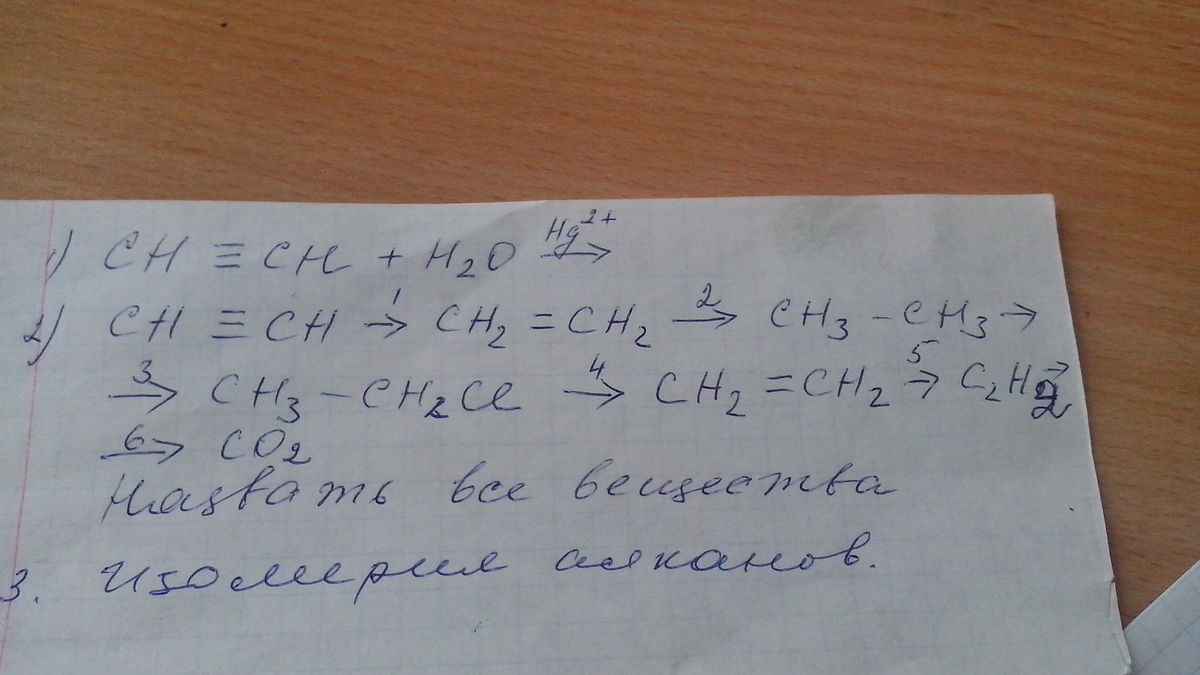 1) CH ≡ CH + H₂O Hg²⁺ →
2) CH ≡ CH 1 → CH₂ = CH₂ 2 → CH₃ – CH₃ →
3 → CH₃ – CH₂Cl 4 → CH₂ = CH₂ 5 → C₂H₂ →
6 → CO₂
Назвать все вещества
3. Изомерия алканов.